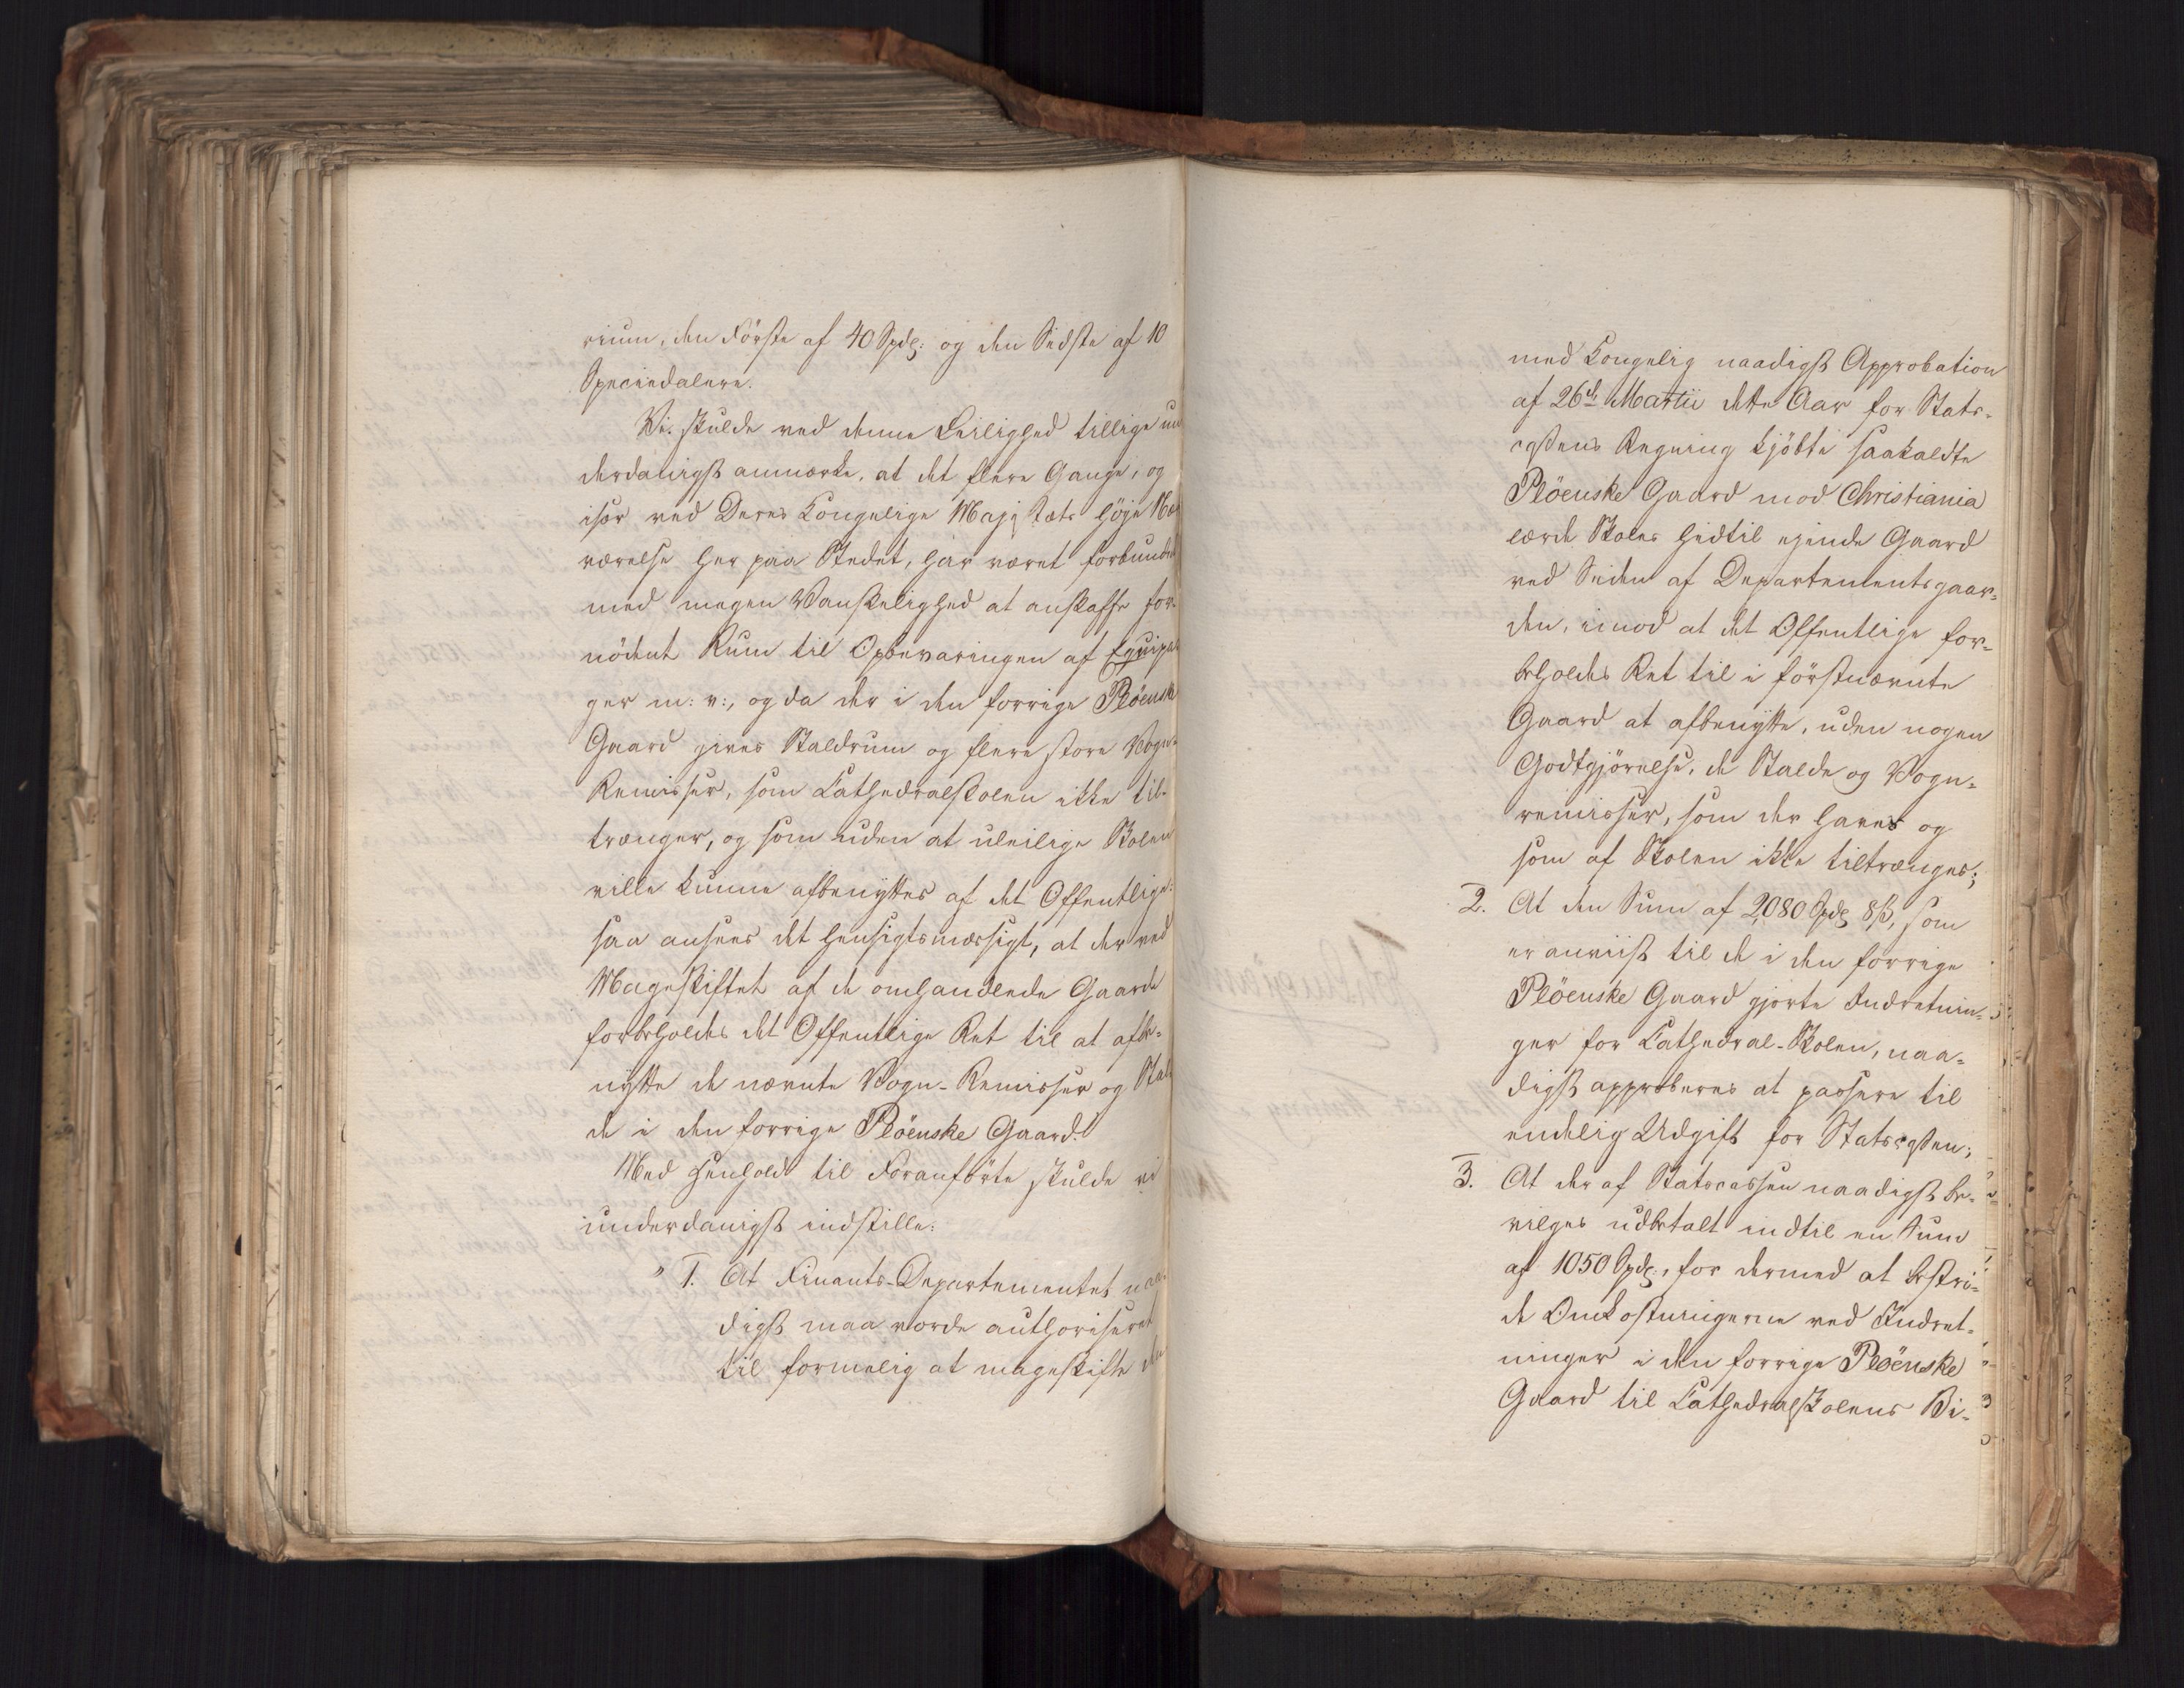 rium, den Förste af 40 Spdlr: og den Sidste af 10
Speciedalere.
Vi skulde ved denne Leilighed tillige un
derdanigst anmærke, at det flere Gange, og
især ved Deres Kongelige Majestæts höje Nær
værelse her paa Stedet, har været forbundet
med megen Vanskelighed at anskaffe for-
nödent Rum til Opbevaringen af Equipa
ger m: v:, og da der i den forrige Plöenske
Gaard gives Staldrum og flere store Vogn-
Remisser, som Kathedralskolen ikke til-
trænger, og som uden at uleilige Skolen
ville kunne afbenyttes af det Offentlige:
saa ansees det hensigtsmæssigt, at der ved
Mageskiftet af de omhandlede Gaarde
forbeholdes det Offentlige Ret til at afbe-
nytte de nævnte Vogn-Remisser og Stal
de i den forrige Plöenske Gaard.
Med Henhold til Foranförte skulde vi
underdanigst indstille:
" 1. At Finants-Departementet naa-
digst maa vorde authoriseret
til formelig at mageskifte den
med Kongelig naadigst Approbation
af 26de Martii dette Aar for Stats-
cassens Regning kjöbte saakaldte
Plöenske Gaard mod Christiania
lærde Skoles hidtil ejende Gaard
ved Siden af Departementsgaar-
den, imod at det Offentlige for-
beholdes Ret til i förstnævnte
Gaard at afbenytte, uden nogen
Godtgjörelse, de Stalde og Vogn-
remisser, som der haves og
som af Skolen ikke tiltrænges;
2. At den Sum af 2,080 Spdlr 8 ß, som
er anviist til de i den forrige
Plöenske Gaard gjorte Indretnin-
ger for Kathedral-Skolen, naa-
digst approberes at passere til
endelig Udgift for Statscassen;
3. At der af Statscassen naadigst be-
vilges udbetalt indtil en Sum
af 1050 Spdlr:, for dermed at bestri-
de Omkostningerne ved Indret-
ninger i den forrige Plöenske
Gaard til Kathedralskolens Bi-